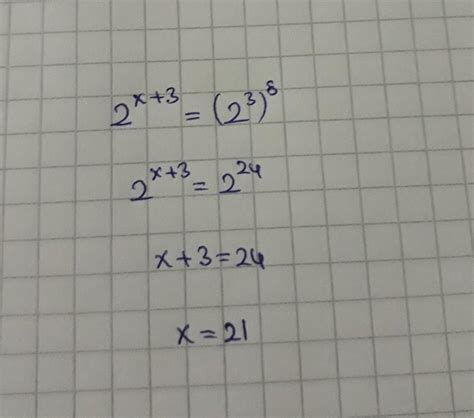 2^{x+3} = (2^3)^8
2^{x+3} = 2^{24}
x+3=24
x=21